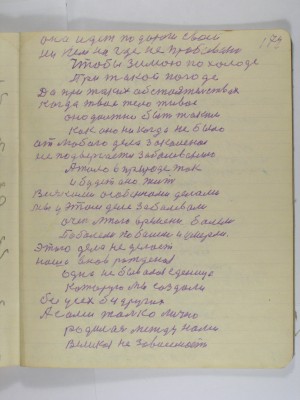 она идет по дороги своей
179
ни кем на где не пробовано
Чтобы Зимою по холоде
При такой погоде
Да при таких обстоятельствах
когда твое тело живое
оно должно быт таким
как оно никогда не было
от любого дела закаленое
не подвергается заболеванию
А тело в природе так
и будет оно жит
Великими особами делами
мы этом деле Заболевали
очен много времени болели
болели не башне и умерли
Этого дела не делает
наша вновь рожденая
одна не бывалая еденица
Которую мы создали
бе усех и других
А сами только лично
родилас между нами
великая не Зависимость